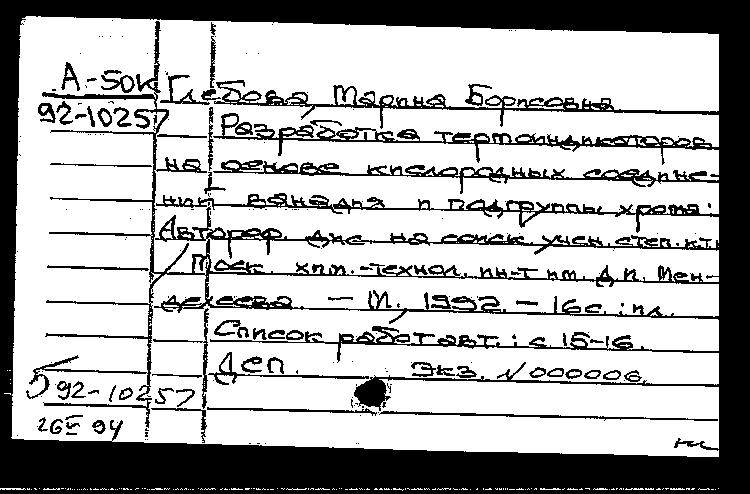 А-50к Глебова, Марина Борисовна
92-10257 Разработка термоиндикаторов
на основе кислородных соедине-
ний ванадия и подгруппы хрома:
Автореф. дис на соиск. учен. степ. к.т.н
/ Моск. хим.-технол. ин-т им. Д.И. Мен-
делеева. - М., 1992. - 16с. : ил.
Список работ авт.: с 15-16.
Деп. Экз. N000006.
92-10257
26 94